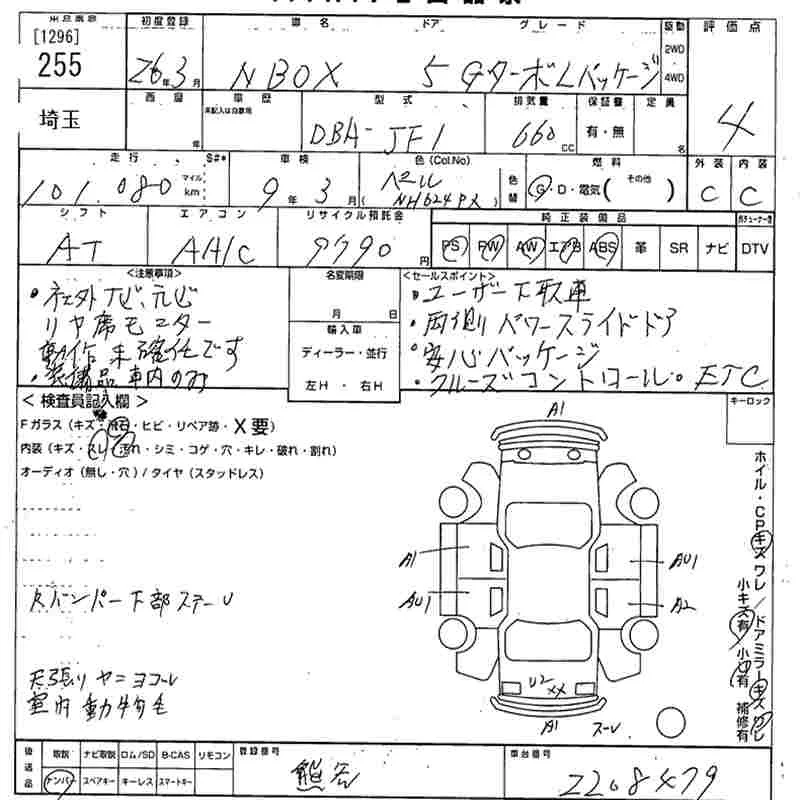 [1296]
255
初度登録 車名 ドア グレード 駆動 評価点
26年3月 NBOX 5 GターボLパッケージ 2WD 4WD
4
埼玉
車歴 型式 排気量 保証書 定員
年 未記入は自家用 DBA-JF1 660 CC 有・無 名
走行 S#* 車検 色(Col.No) 燃料 外装 内装
101,080 マイル km 9年3月 パール (NH624PX) 色替 G・D・電気(その他) C C
シフト エアコン リサイクル預託金 純正装備品
AT AA/C 9790円 PS PW AW エアB ABS 革 SR ナビ DTV
<注意事項> 名変期限 <セールスポイント>
・社外ナビ、テレビ 月 日 ・ユーザー下取車
リヤ席モニター 輸入車 ・両側パワースライドドア
動作未確任です ディーラー・並行 ・安心パッケージ
・装備品車内のみ 左H・右H ・クルーズコントロール。ETC
<検査員記入欄> キーロック
Fガラス(キズ・飛石・ヒビ・リペア跡・X要)
内装(キズ・スレ・汚れ・シミ・コゲ・穴・キレ・破れ・割れ)
オーディオ(無し・穴)/タイヤ(スタッドレス)
A1
A1 AU1
AU1 A2
U2 XX
A1 スーU
ホイル・CPキズワレ/ドアミラーキズワレ
小キズ有 小凹有 補修有
Rバンパー下部スーU
天張りヤニヨゴレ
室内動物毛
後送品 取説 ナビ取説 ロム/SD B-CAS リモコン 登録番号 車台番号
ナンバー スペアキー キーレス スマートキー 熊谷 2208479